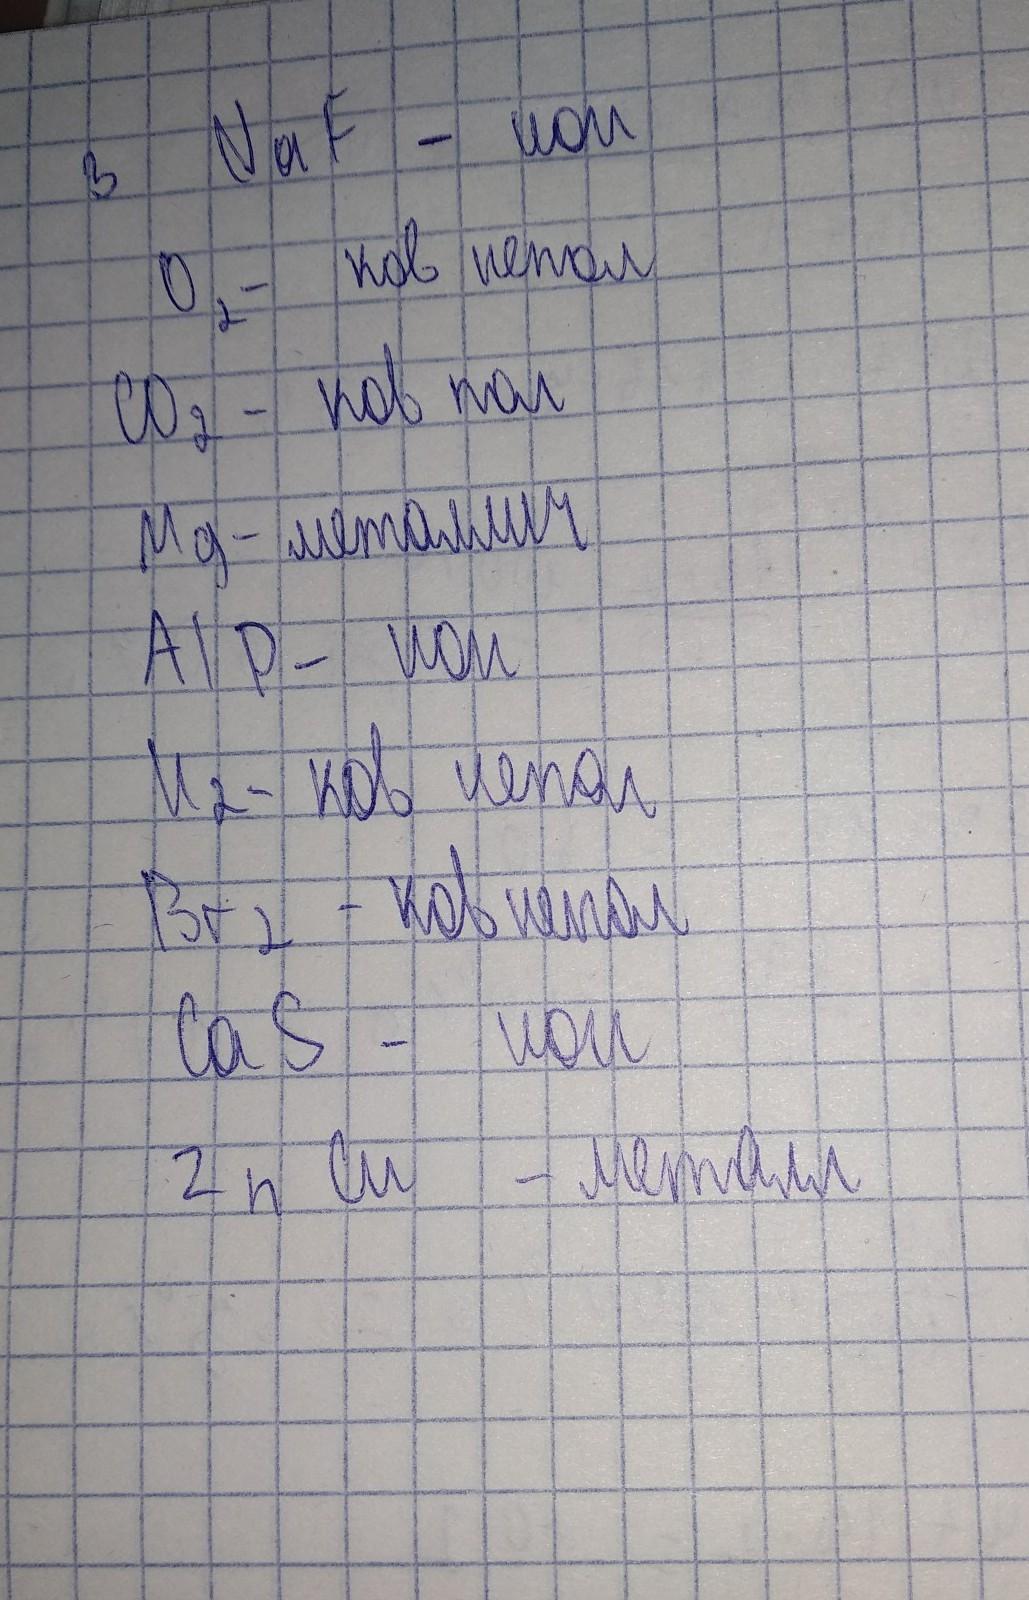 3 NaF - ион
O2 - ков непол
CO2 - ков пол
Mg - металлич
AlP - ион
H2 - ков непол
Br2 - ков непол
CaS - ион
Zn Cu - металл